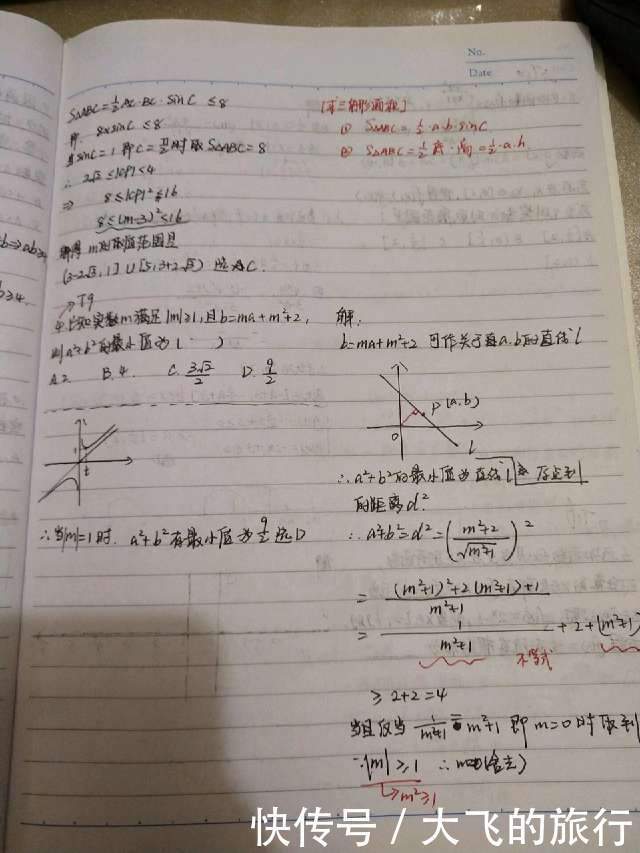 No.
Date
S△ABC=½AC·BC·sinC ≤8
即 8×sinC ≤8
当sinC=1 即C=π/2时取S△ABC=8
∴ 2√2≤|CP|≤4
⇒ 8≤|CP|²≤16
8≤(m-3)²≤16
解得 m的取值范围是
(3-2√3,1]∪[5,3+2√3) 选C.
[求三角形面积]
① S△ABC=½·a·b·sinC
② S△ABC=½底·高=½·a·h.
→T9
4.已知实数m满足|m|≥1,且b=ma+m²+2,
则a²+b²的最小值为( )
A.2 B.4. C.3√2/2 D.9/2
∴当|m|=1时. a²+b²有最小值为9/2 选D
解:
b=ma+m²+2 可作关于a.b的直线l
P(a,b)
0
l
∴a²+b²的最小值为直线l 原点到l
的距离d².
∴a²+b²=d²=((m²+2)/√(m²+1))²
=((m²+1)²+2(m²+1)+1)/(m²+1)
=1/(m²+1)+2+(m²+1)
不等式
≥2+2=4
当且仅当1/(m²+1)=m²+1 即m=0时取到
∵|m|≥1 ∴m=0(舍去)
↳m²≥1
快传号 / 大飞的旅行